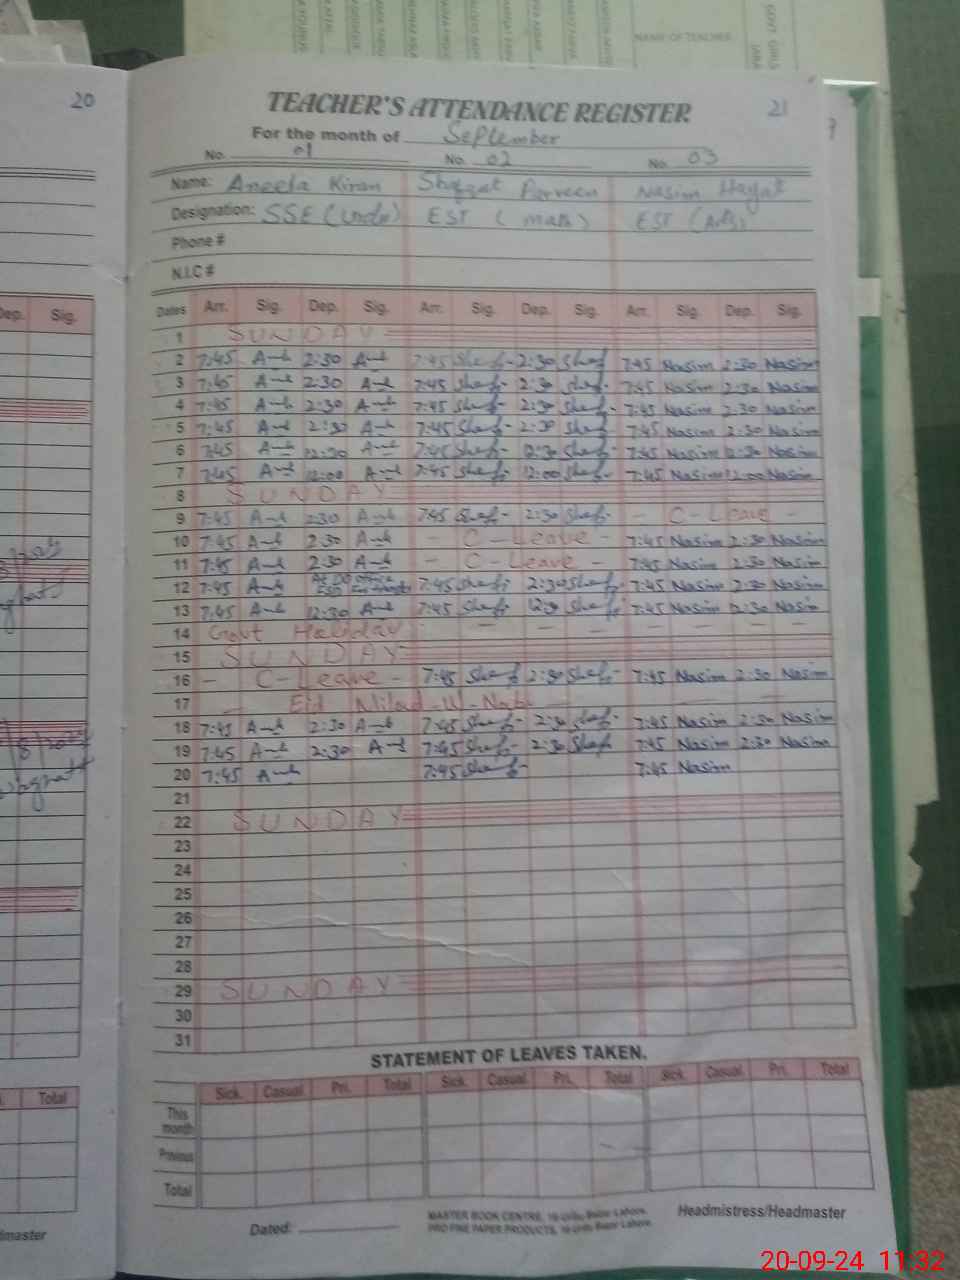 NAME OF TEACHER
20
21
TEACHER'S ATTENDANCE REGISTER
For the month of September
No. 01 No. 02 No. 03
Name: Aneela Kiran Shafqat Parveen Nasim Hayat
Designation: SSE (Urdu) EST (math) EST (Arts)
Phone #
N.I.C #
Dep. Sig.
Dates Arr. Sig. Dep. Sig. Arr. Sig. Dep. Sig. Arr. Sig. Dep. Sig.
1 SUNDAY
2 7:45 2:30 7:45 Shaf 2:30 Shaf 7:45 Nasim 2:30 Nasim
3 7:45 2:30 7:45 Shaf 2:30 Shaf 7:45 Nasim 2:30 Nasim
4 7:45 2:30 7:45 Shaf 2:30 Shaf 7:45 Nasim 2:30 Nasim
5 7:45 2:30 7:45 Shaf 2:30 Shaf 7:45 Nasim 2:30 Nasim
6 7:45 12:30 7:45 Shaf 12:30 Shaf 7:45 Nasim 12:30 Nasim
7 7:45 12:00 7:45 Shaf 12:00 Shaf 7:45 Nasim 12:00 Nasim
8 SUNDAY
9 7:45 2:30 7:45 Shaf 2:30 Shaf - C-Leave -
10 7:45 2:30 - C-Leave - 7:45 Nasim 2:30 Nasim
11 7:45 2:30 - C-Leave - 7:45 Nasim 2:30 Nasim
12 7:45 7:45 Shaf 2:30 Shaf 7:45 Nasim 2:30 Nasim
13 7:45 12:30 7:45 Shaf 12:30 Shaf 7:45 Nasim 12:30 Nasim
14 Govt Holiday - - - - - - -
15 SUNDAY
16 - C-Leave - 7:45 Shaf 2:30 Shaf 7:45 Nasim 2:30 Nasim
17 - Eid Milad-U-Nabi - - -
18 7:45 2:30 7:45 Shaf 2:30 Shaf 7:45 Nasim 2:30 Nasim
19 7:45 2:30 7:45 Shaf 2:30 Shaf 7:45 Nasim 2:30 Nasim
20 7:45 7:45 Shaf 7:45 Nasim
21
22 SUNDAY
23
24
25
26
27
28
29 SUNDAY
30
31
STATEMENT OF LEAVES TAKEN.
Total
Sick. Casual Pri. Total Sick. Casual Pri. Total Sick. Casual Pri. Total
This month
Previous
Total
Dated:
MASTER BOOK CENTRE, 16 Urdu Bazar Lahore.
PRO FINE PAPER PRODUCTS, 16 Urdu Bazar Lahore.
Headmistress/Headmaster
20-09-24 11:32